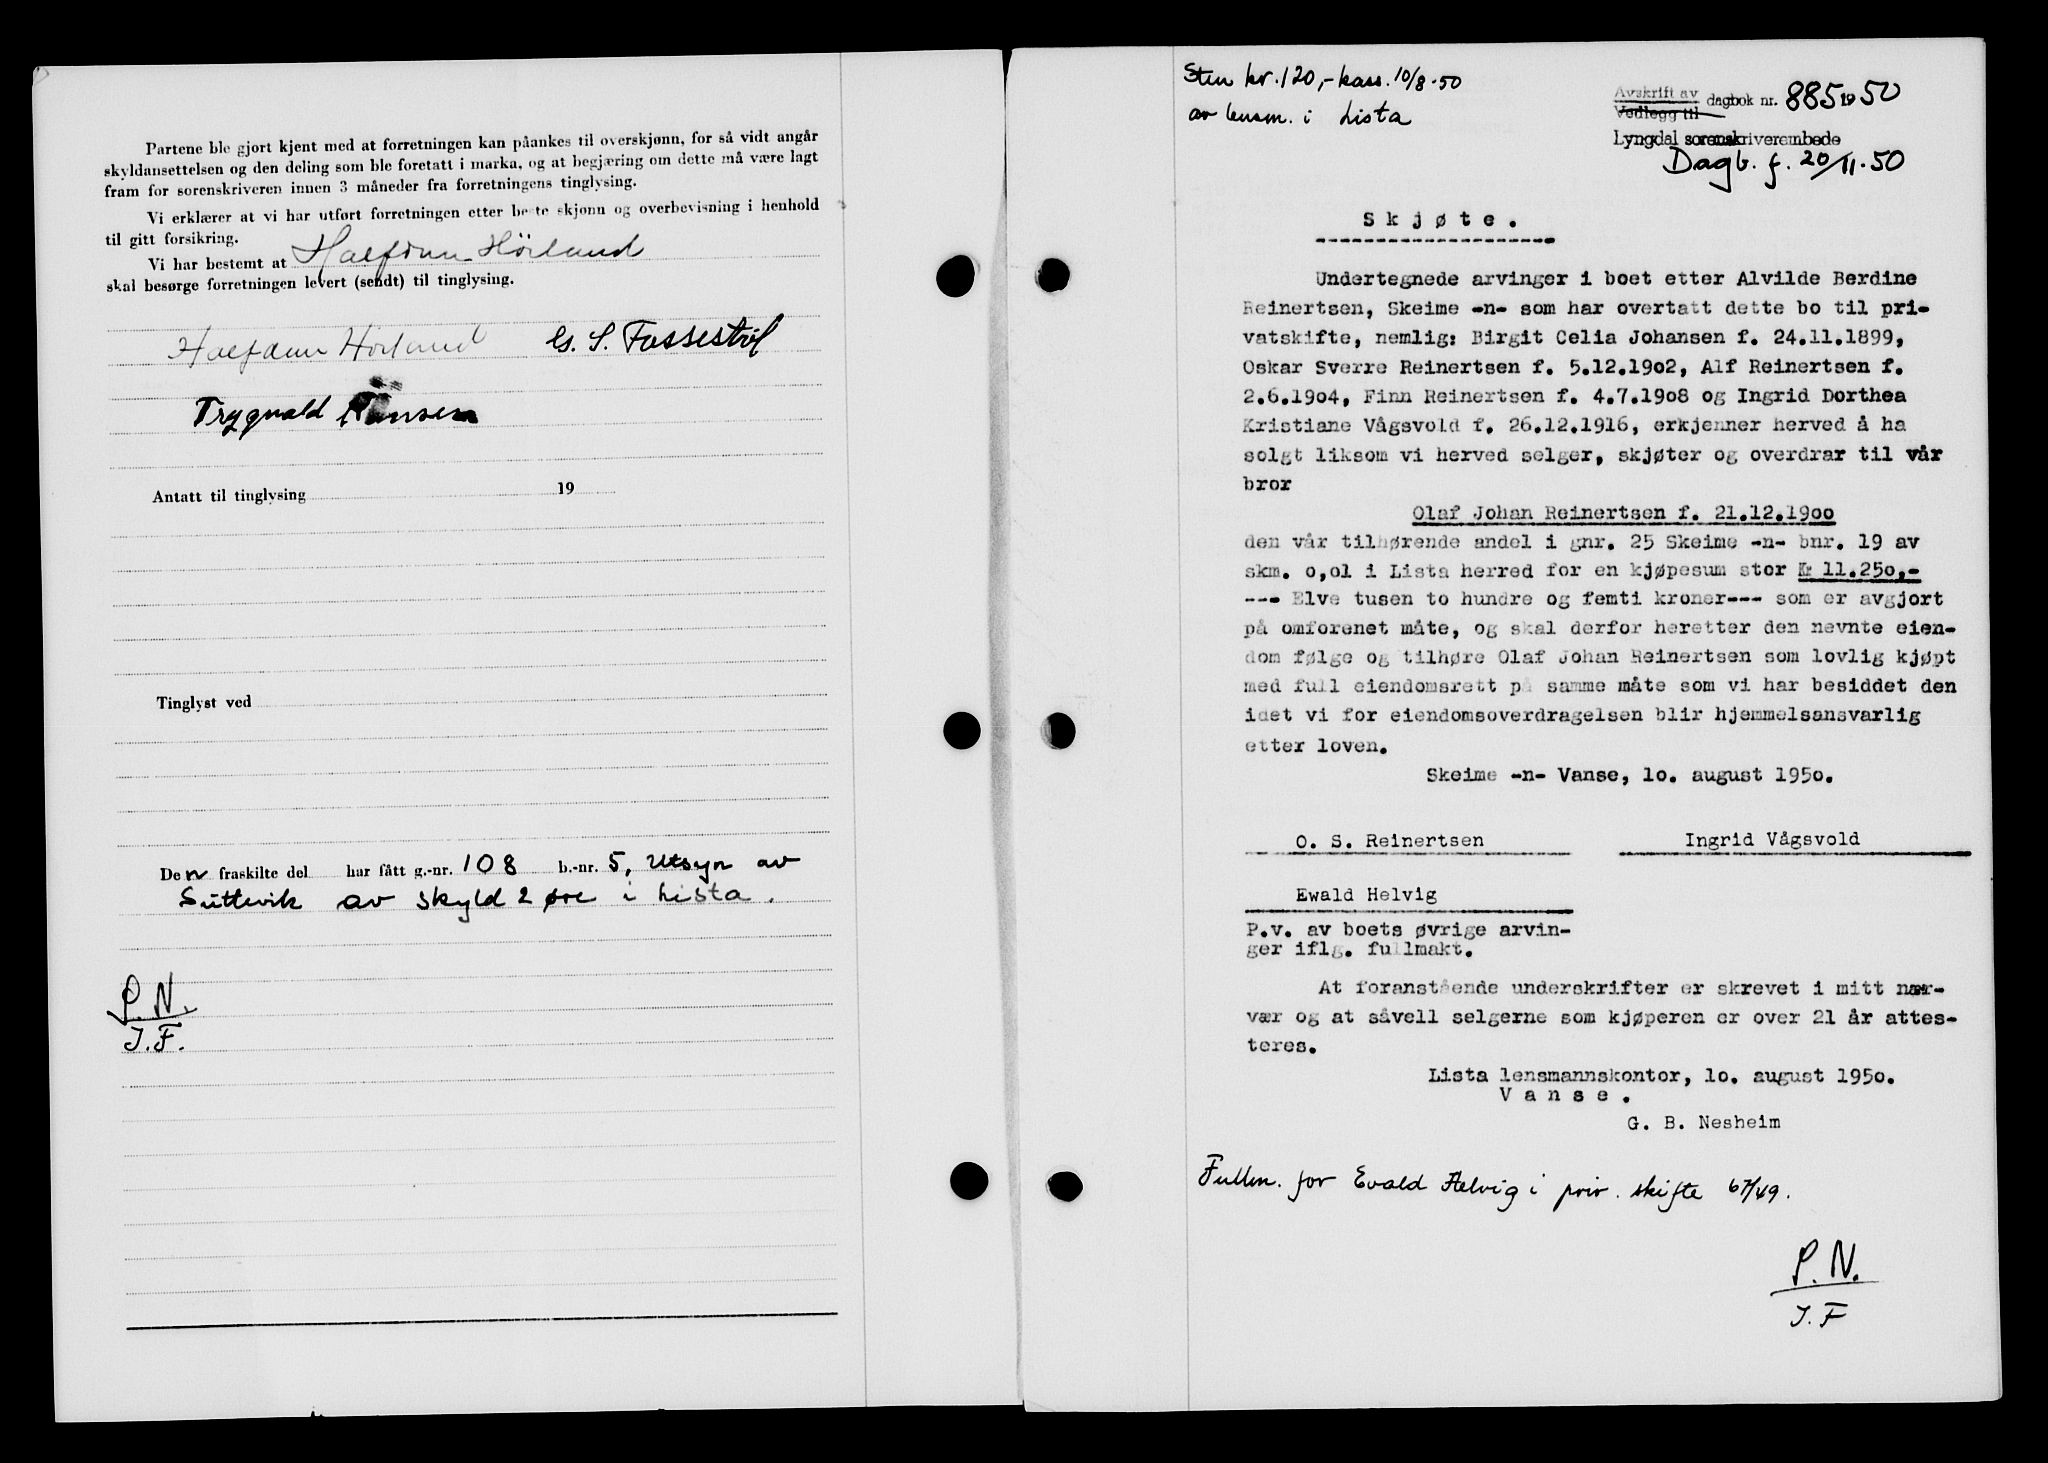 Partene ble gjort kjent med at forretningen kan påankes til overskjønn, for så vidt angår
skyldansettelsen og den deling som ble foretatt i marka, og at begjæring om dette må være lagt
fram for sorenskriveren innen 3 måneder fra forretningens tinglysing.
Vi erklærer at vi har utført forretningen etter beste skjønn og overbevisning i henhold
til gitt forsikring.
Vi har bestemt at Halfdan Hörland
skal besørge forretningen levert (sendt) til tinglysing.
Halfdan Hörland G. S. Fossestöl
Trygvald Hansen
Antatt til tinglysing 19
Tinglyst ved
Den fraskilte del har fått g.-nr. 108 b.-nr. 5, Utsyn av
Suttevik av skyld 2 øre i Lista.
P. N.
J. F.
Stem kr. 120,- kass. 10/8-50
av lensm. i Lista
Avskrift av
Vedlegg til dagbok nr. 885 1950
Lyngdal sorenskriverembede
Dagb. f. 20/11-50
Skjøte.
Undertegnede arvinger i boet etter Alvilde Berdine
Reinertsen, Skeime -n- som har overtatt dette bo til pri-
vatskifte, nemlig: Birgit Celia Johansen f. 24.11.1899,
Oskar Sverre Reinertsen f. 5.12.1902, Alf Reinertsen f.
2.6.1904, Finn Reinertsen f. 4.7.1908 og Ingrid Dorthea
Kristiane Vågsvold f. 26.12.1916, erkjenner herved å ha
solgt liksom vi herved selger, skjøter og overdrar til vår
bror
Olaf Johan Reinertsen f. 21.12.1900
den vår tilhørende andel i gnr. 25 Skeime -n- bnr. 19 av
skm. 0,01 i Lista herred for en kjøpesum stor Kr 11.250,-
--- Elve tusen to hundre og femti kroner--- som er avgjort
på omforenet måte, og skal derfor heretter den nevnte eien-
dom følge og tilhøre Olaf Johan Reinertsen som lovlig kjøpt
med full eiendomsrett på samme måte som vi har besiddet den
idet vi for eiendomsoverdragelsen blir hjemmelsansvarlig
etter loven.
Skeime -n- Vanse, 10. august 1950.
O. S. Reinertsen Ingrid Vågsvold
Ewald Helvig
P.v. av boets øvrige arvin-
ger iflg. fullmakt.
At foranstående underskrifter er skrevet i mitt nær-
vær og at såvell selgerne som kjøperen er over 21 år attes-
teres.
Lista lensmannskontor, 10. august 1950.
Vanse.
G. B. Nesheim
Fullm. for Evald Helvig i priv. skifte 67/49.
P. N.
J. F